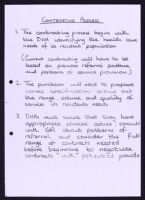 CONTRACTING PROCESS
1. The contracting process begins with
the DHA identifying the health care
needs of its resident population
(current contracting will have to be
based on previous referral patterns
and patterns of service provision)
2. The purchaser will need to prepare
service specification setting out
the range volume and quality of
services its residents need.
3. DHAs must ensure that they have
appropriate clinical advice consult
with GPs about patterns of
referral, and consider the full
range of contract needed
before beginning to negotiate
contract with potential provide